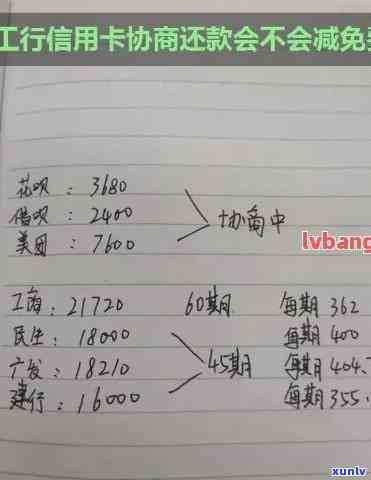 工行信用卡协商还款会不会减免
花呗：3680
借呗：2400
美团：7600
协商中
lvbang
工商：21720 60期 每期 362
民生：18000 每期 400
广发：18210 45期 每期 404.
建行：16000 每期 355.
xunlv